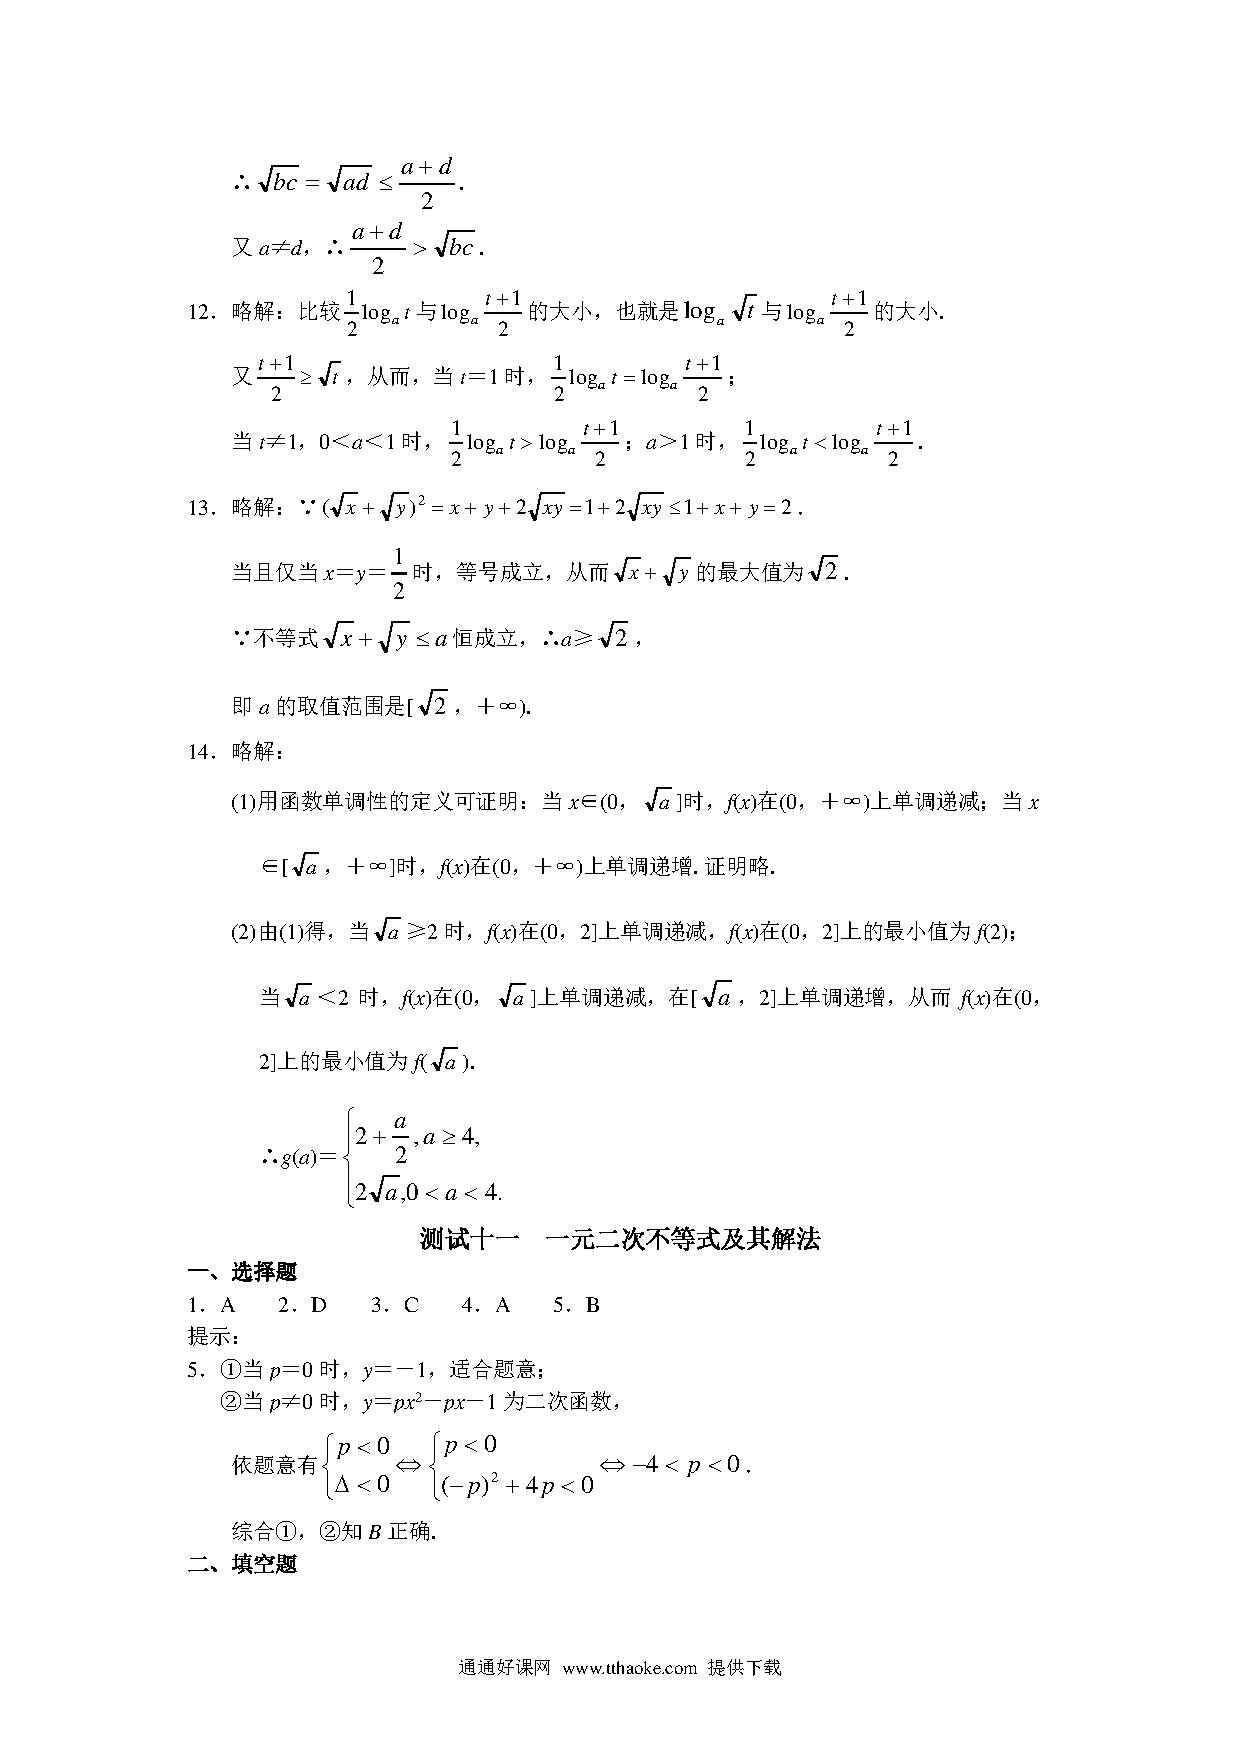 ∴ √bc = √ad ≤ (a+d)/2 .
又 a≠d，∴ (a+d)/2 > √bc .
12．略解：比较 1/2 logₐ t 与 logₐ (t+1)/2 的大小，也就是 logₐ √t 与 logₐ (t+1)/2 的大小．
又 (t+1)/2 ≥ √t ，从而，当 t＝1 时， 1/2 logₐ t = logₐ (t+1)/2 ；
当 t≠1，0＜a＜1 时， 1/2 logₐ t > logₐ (t+1)/2 ；a＞1 时， 1/2 logₐ t < logₐ (t+1)/2 .
13．略解：∵ (√x + √y)² = x + y + 2√xy = 1 + 2√xy ≤ 1 + x + y = 2 .
当且仅当 x＝y＝ 1/2 时，等号成立，从而 √x + √y 的最大值为 √2 .
∵不等式 √x + √y ≤ a 恒成立，∴a≥ √2 ，
即 a 的取值范围是[ √2 ，＋∞)．
14．略解：
(1)用函数单调性的定义可证明：当 x∈(0， √a ]时，f(x)在(0，＋∞)上单调递减；当 x
∈[ √a ，＋∞]时，f(x)在(0，＋∞)上单调递增．证明略．
(2)由(1)得，当 √a ≥2 时，f(x)在(0，2]上单调递减，f(x)在(0，2]上的最小值为 f(2)；
当 √a ＜2 时，f(x)在(0， √a ]上单调递减，在[ √a ，2]上单调递增，从而 f(x)在(0，
2]上的最小值为 f( √a )．
∴g(a)＝ { 2 + a/2 , a ≥ 4,
2√a ,0 < a < 4.
测试十一 一元二次不等式及其解法
一、选择题
1．A 2．D 3．C 4．A 5．B
提示：
5．①当 p＝0 时，y＝－1，适合题意；
②当 p≠0 时，y＝px²－px－1 为二次函数，
依题意有 { p < 0 Δ < 0 ⇔ { p < 0 (−p)² + 4p < 0 ⇔ −4 < p < 0 .
综合①，②知 B 正确．
二、填空题
通通好课网 www.tthaoke.com 提供下载